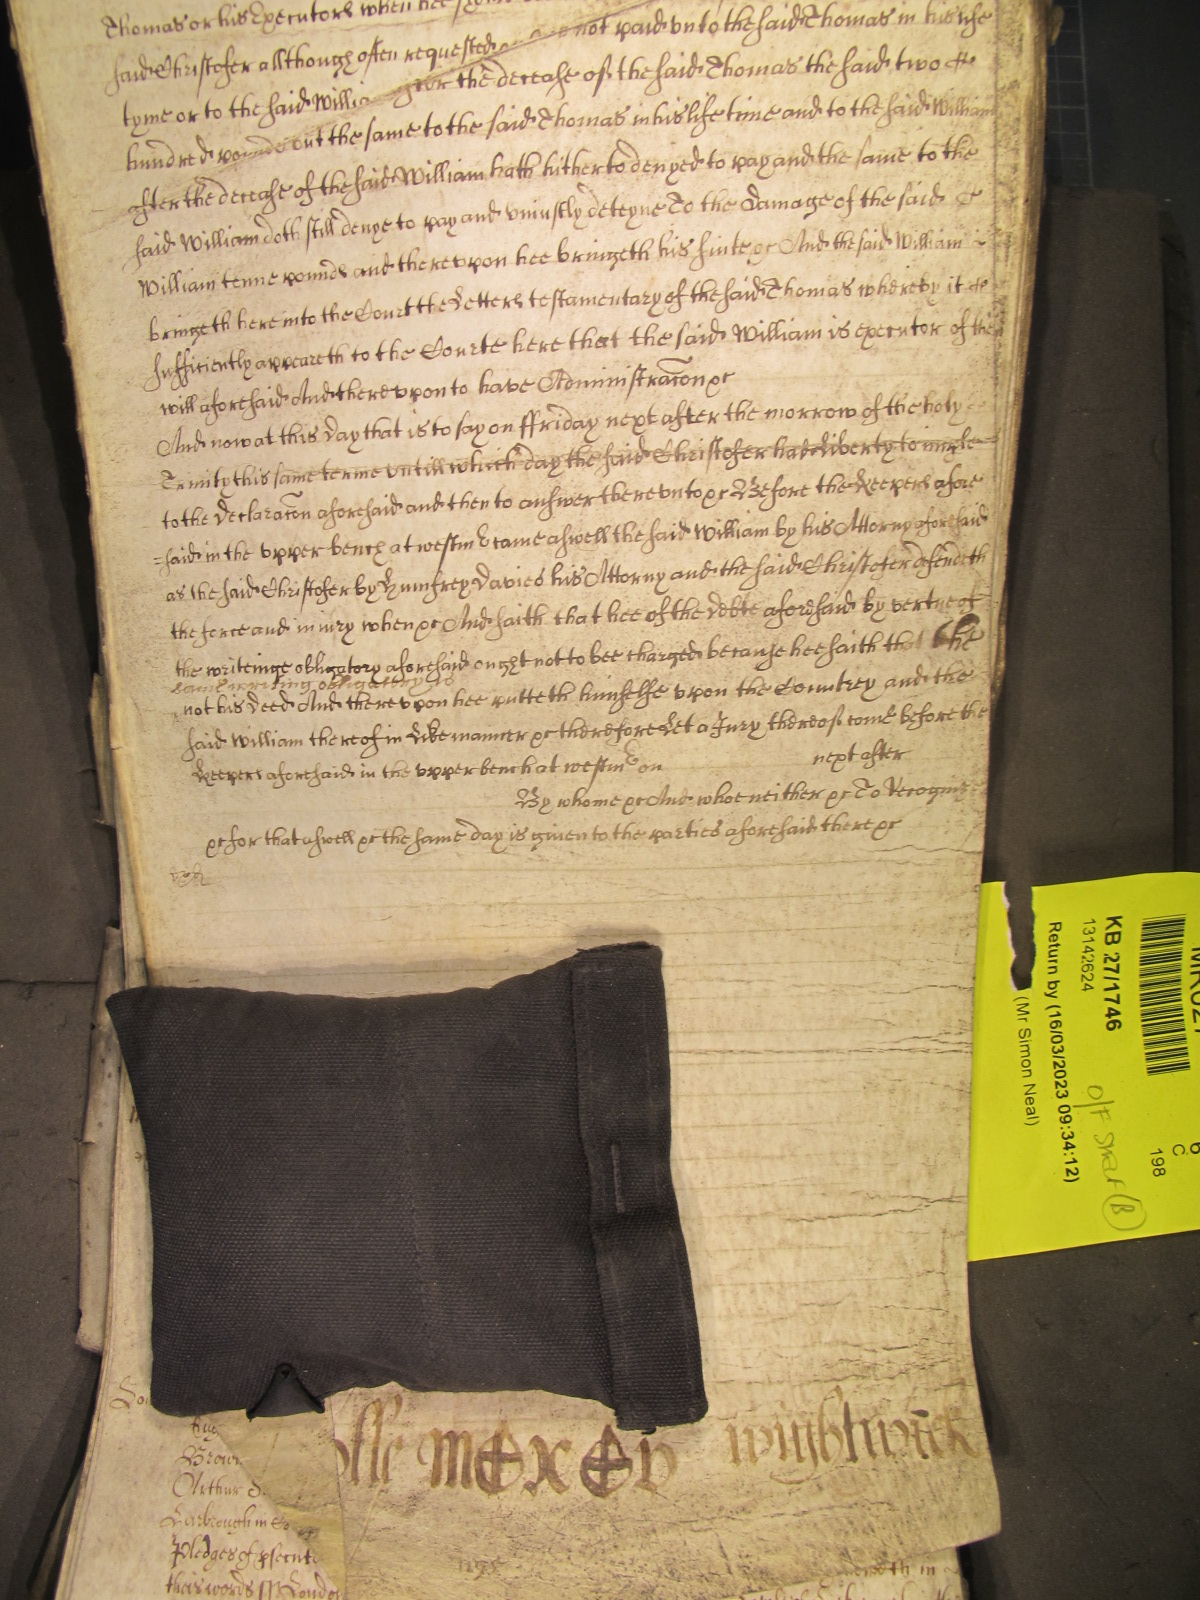 Thomas or his Executors when hee
said Christofer allthough often requested not paid vnto the said Thomas in his life
tyme or to the said Willia after the decease of the said Thomas the said two
hundred pounds but the same to the said Thomas in his life time and to the said William
after the decease of the said William hath hitherto denyed to pay and the same to the
said William doth still denye to pay and vniustly deteyne To the Damage of the said
William tenne pounds and therevpon hee bringeth his suite &c And the said William
bringeth here into the Court the Letters testamentary of the said Thomas whereby it
sufficiently appeareth to the Courte here that the said William is executor of the
will aforesaid And therevpon to have Administracon &c
And now at this day that is to say on ffriday next after the morrow of the holy
Trinity this same terme vntill which day the said Christofer had liberty to imple
to the declaracon aforesaid and then to answer therevnto &c Before the Keepers afore
=said in the vpper bench at westm came aswell the said William by his Attorny aforesaid
as the said Christofer by Humfrey Davies his Attorny and the said Christofer defendeth
the force and iniury when &c And saith that hee of the debte aforesaid by vertue of
the writeinge obligatory aforesaid ought not to bee charged because hee saith that the
said writing obligatory is
not his deed And therevpon hee putteth himselfe vpon the Countrey and the
said William thereof in like manner &c therefore Let a Jury thereof come before the
Keepers aforesaid in the vpper bench at westm on next after
By whome &c And whoe neither &c To Recognize
&c for that aswell &c the same day is given to the parties aforesaid there &c
wightwick
Brow
Arthur
Pledges of psecut
theis words ss London
KB 27/1746
13142624
Return by (16/03/2023 09:34:12)
(Mr Simon Neal)
O/F Shelf (B)
6
C
198